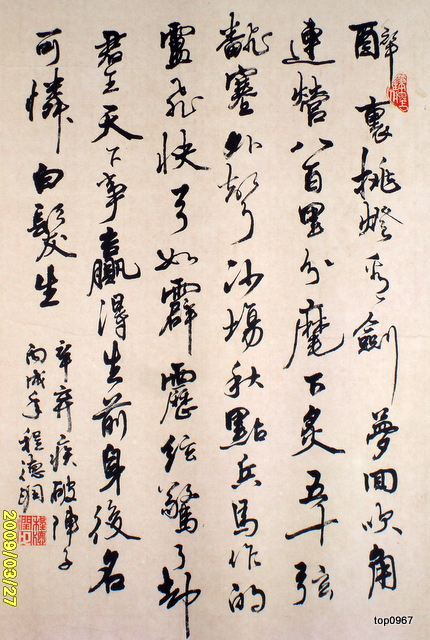 醉裏挑燈看劍夢回吹角
連營八百里分麾下炙五十弦
飜塞外聲沙場秋點兵馬作的
盧飛快弓如霹靂絃驚了却
君王天下事贏得生前身後名
可憐白髮生
辛弃疾破陣子
丙戌年程德
2009/03/27
top0967